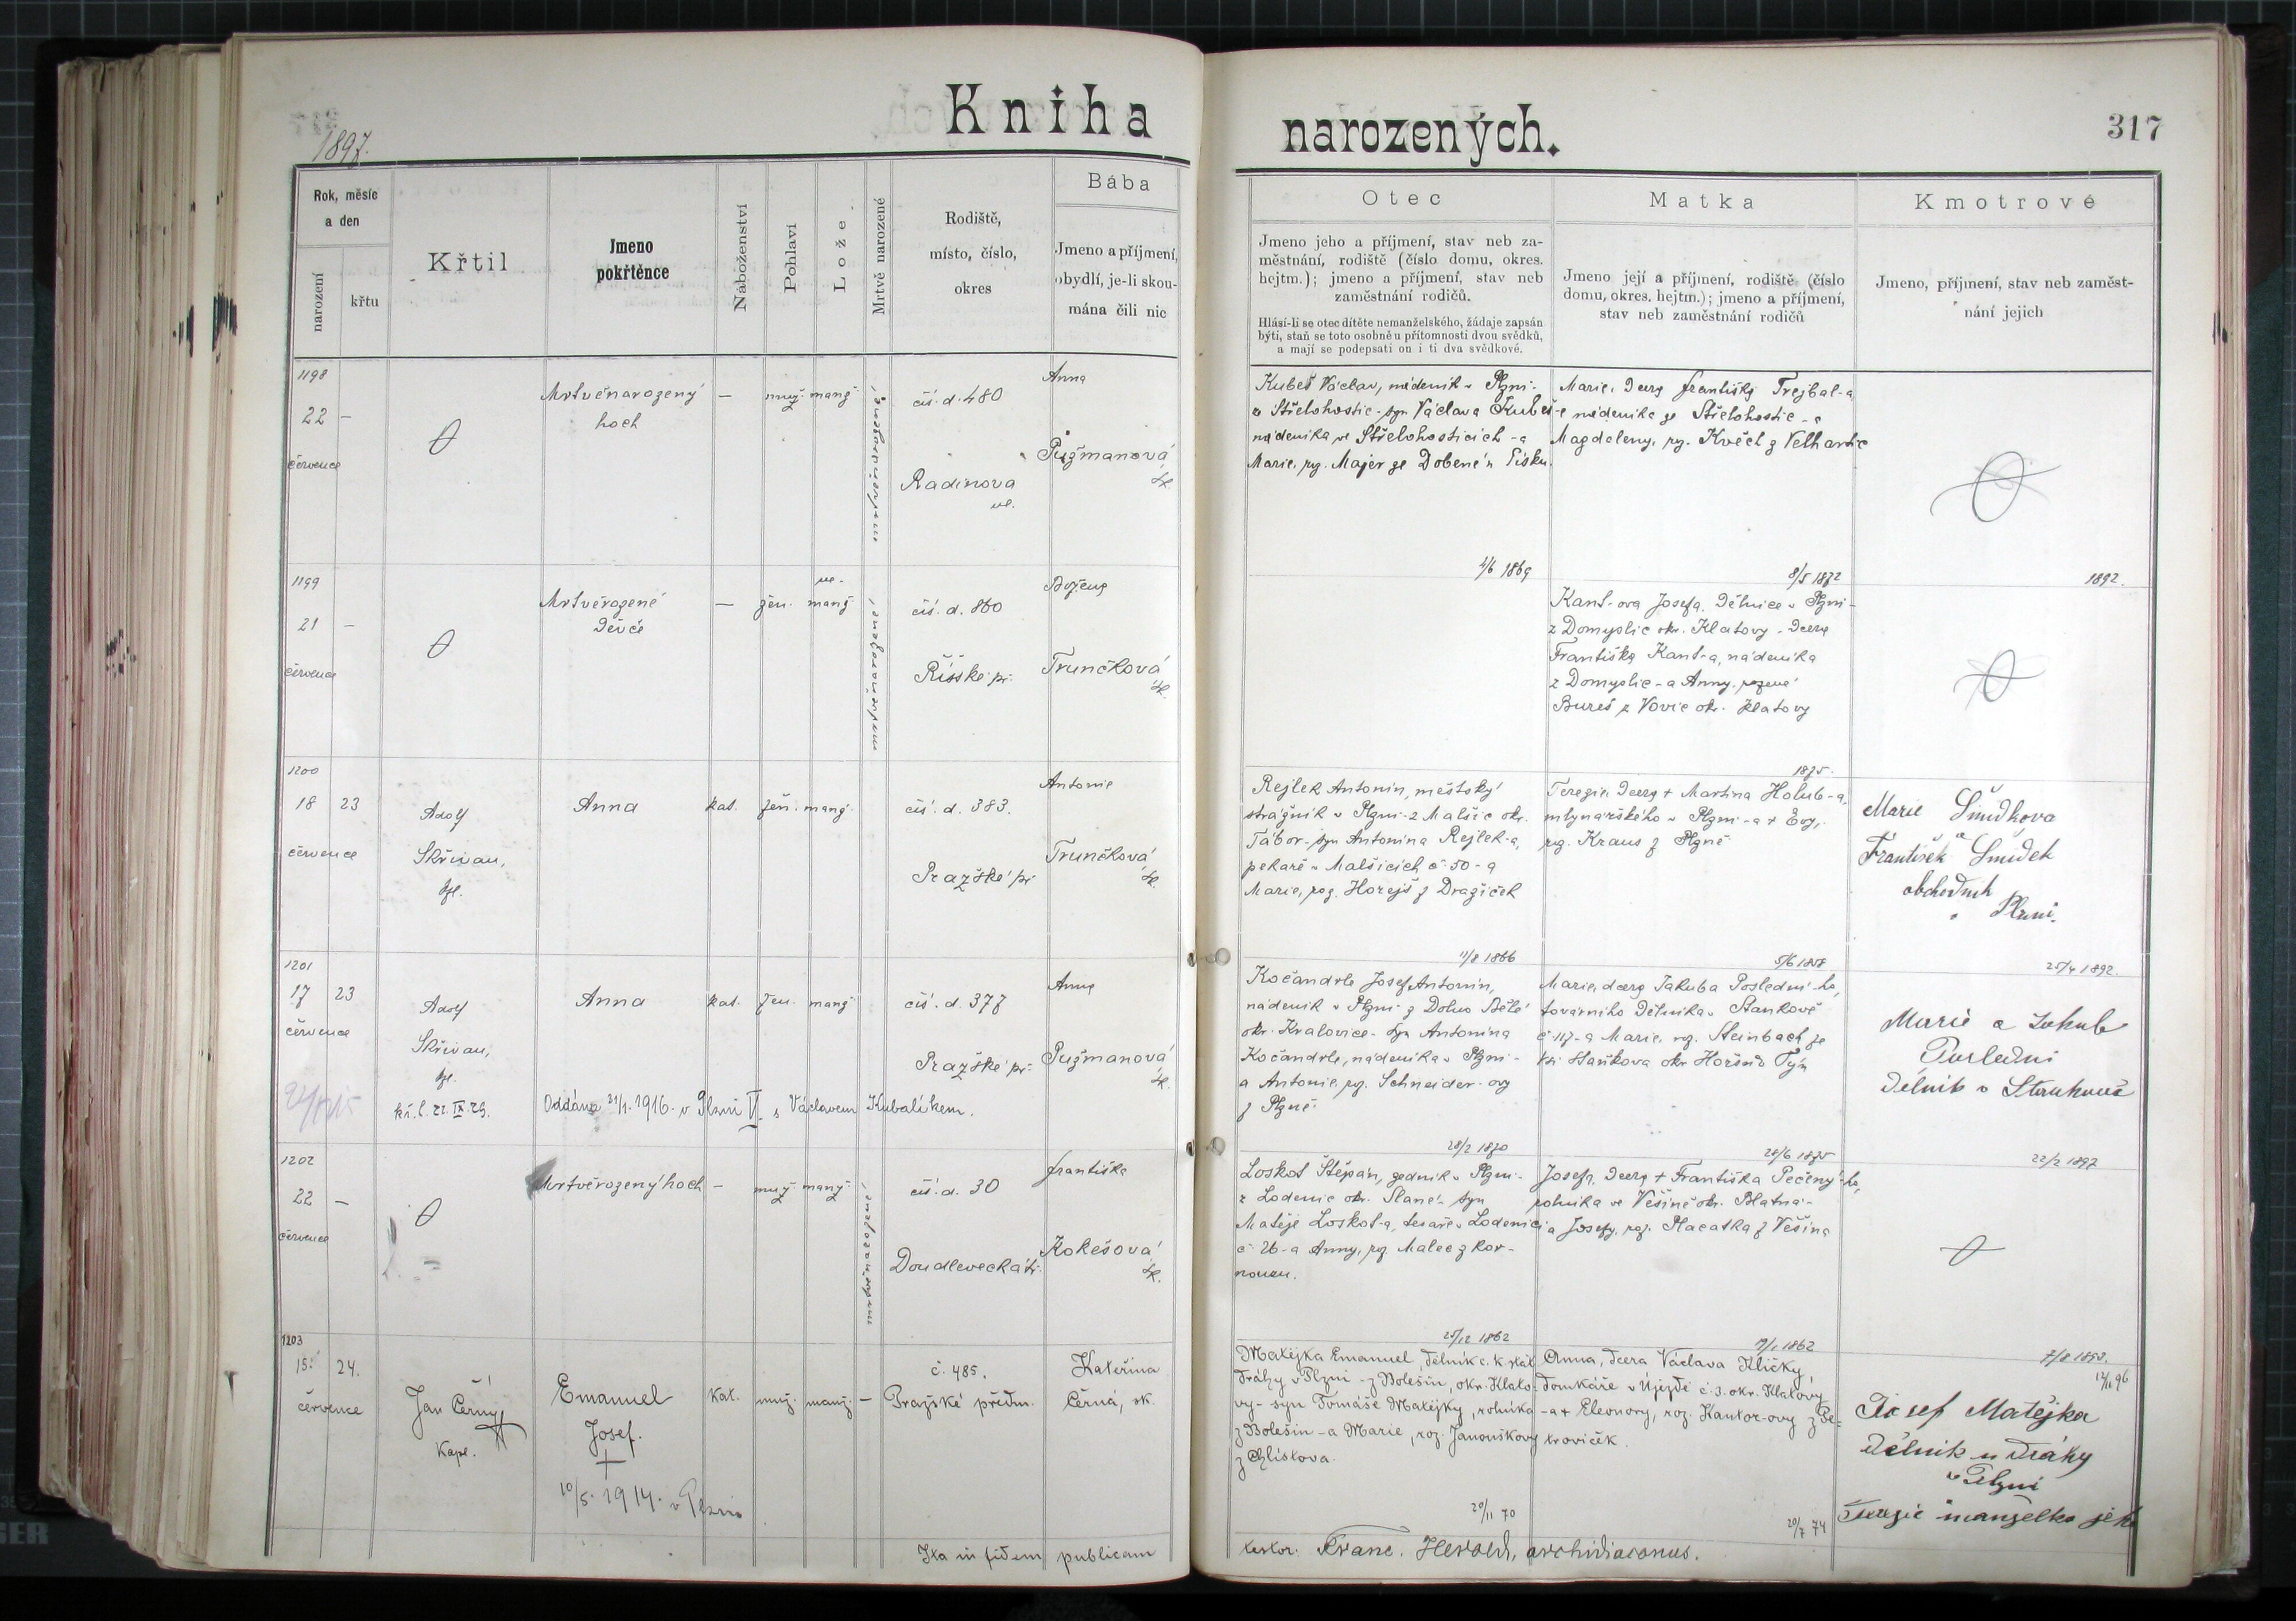 Kniha
narozených.
317
1897.
Rok, měsíc
a den
narození
křtu
Křtil
Jmeno
pokřtěnce
Náboženství
Pohlaví
Lože
Mrtvě narozené
Rodiště,
místo, číslo,
okres
Bába
Jmeno a příjmení,
obydlí, je-li skou-
mána čili nic
Otec
Jmeno jeho a příjmení, stav neb za-
městnání, rodiště (číslo domu, okres.
hejtm.); jmeno a příjmení, stav neb
zaměstnání rodičů.
Hlásí-li se otec dítěte nemanželského, žádaje zapsán
býti, staň se toto osobně u přítomnosti dvou svědků,
a mají se podepsati on i ti dva svědkové.
Matka
Jmeno její a příjmení, rodiště (číslo
domu, okres. hejtm.); jmeno a příjmení,
stav neb zaměstnání rodičů
Kmotrové
Jmeno, příjmení, stav neb zaměst-
nání jejich
1198
22 –
července
Mrtvěnarozený
hoch
–
muž.
manž.
mrtvěnarozené
čís. d. 480
Radinova
ul.
Anna
Pužmanová
sk.
Kubeš Václav, nádeník v Plzni-
z Střelohostic - syn Václava Kubeš-e
nádeníka ve Střelohosticích - a
Marie, roz. Majer ze Dobené n Písku.
4/6 1869
Marie, dcera Františka Trejbal-a
nádeníka ze Střelohostic - a
Magdaleny, roz. Květ z Velhartic
8/5 1872
1892.
1199
21 –
července
Mrtvěrozené
děvče
–
žen.
ne-
manž
mrtvěnarozené
čís. d. 860
Říšské př.
Božena
Trunčková
sk.
Kant-ova Josefa, dělnice v Plzni-
z Domyslic okr. Klatovy - dcera
Františka Kant-a, nádeníka
z Domyslic - a Anny, rozené
Bureš z Vovic okr. Klatovy
1875.
1200
18 23
července
Adolf
Skřivan,
kpl.
Anna
kat.
žen.
manž.
čís. d. 383.
Pražské př
Antonie
Trunčková
sk.
Rejlek Antonín, městský
strážník v Plzni - z Malšic okr.
Tábor - syn Antonína Rejlek-a,
pekaře v Malšicích č 50 - a
Marie, roz. Horejš z Dražiček
11/8 1866
Terezie, dcera + Martina Holub-a,
mlynářského v Plzni - a + Evy,
roz. Kraus z Plzně
5/6 1858
Marie Šmidkova
a
František Šmidek
obchodník
v Plzni.
25/4 1892.
1201
17 23
července
Adolf
Skřivan,
kpl.
kř. l. 21. IX. 29.
Anna
kat.
žen.
manž
čís. d. 377
Pražské př.
Anna
Pužmanová
sk.
Oddána 21/1. 1916. v Plzni s Václavem Kubalíkem.
Kočandrle Josef Antonín,
nádeník v Plzni - z Dolno Bělé
okr. Kralovice - syn Antonína
Kočandrle, nádeníka v Plzni -
a Antonie, roz. Schneider-ovy
z Plzně.
28/2 1870
Marie, dcera Jakuba Poslední-ho,
továrního dělníka v Stankově
č 117 - a Marie, roz. Steinbach ze
vsi Staňkova okr Horšův Týn
28/6 1875
Marie a Jakub
Poslední
dělník v Staňkově
22/2 1897
1202
22 –
července
Mrtvěrozený hoch
–
muž
manž.
mrtvěnarozené
čís. d. 30
Doudlevecká tř.
Františka
Kokešová
sk.
Loskot Štěpán, zedník v Plzni-
z Lodenic okr. Slané - syn
Matěje Loskot-a, tesaře v Lodenici
č 26 - a Anny, roz. Malec z Kor-
nouau.
25/12 1862
Josefa, dcera + Františka Pečený-ho,
rolníka ve Věšíně okr. Blatná -
a Josefy, roz. Placatka z Věšína
19/1 1862
7/8 1892.
1203
15. 24.
července
Jan Černý
Kapl.
Emanuel
Josef.
10/5. 1914. v Plzni
Kat.
muž.
manž.
–
č. 485.
Pražské předm.
Kateřina
Černá, sk.
Matějka Emanuel, dělník c. k. stát.
dráhy v Plzni - z Bolešin, okr. Klato-
vy - syn Tomáše Matějky, rolníka
z Bolešin - a Marie, roz. Janouškovy
z Chlistova.
20/11 70
Anna, dcera Václava Kličky,
domkáře v Újezdě č. 3. okr. Klatovy
- a + Eleonory, roz. Kantor-ovy z Pe-
troviček.
20/7 74
12/11 96
Josef Matějka
dělník u dráhy
v Plzni
Terezie manželka jeho
Ita in fidem publicam
testor: Franc. Herold, archidiaconus.